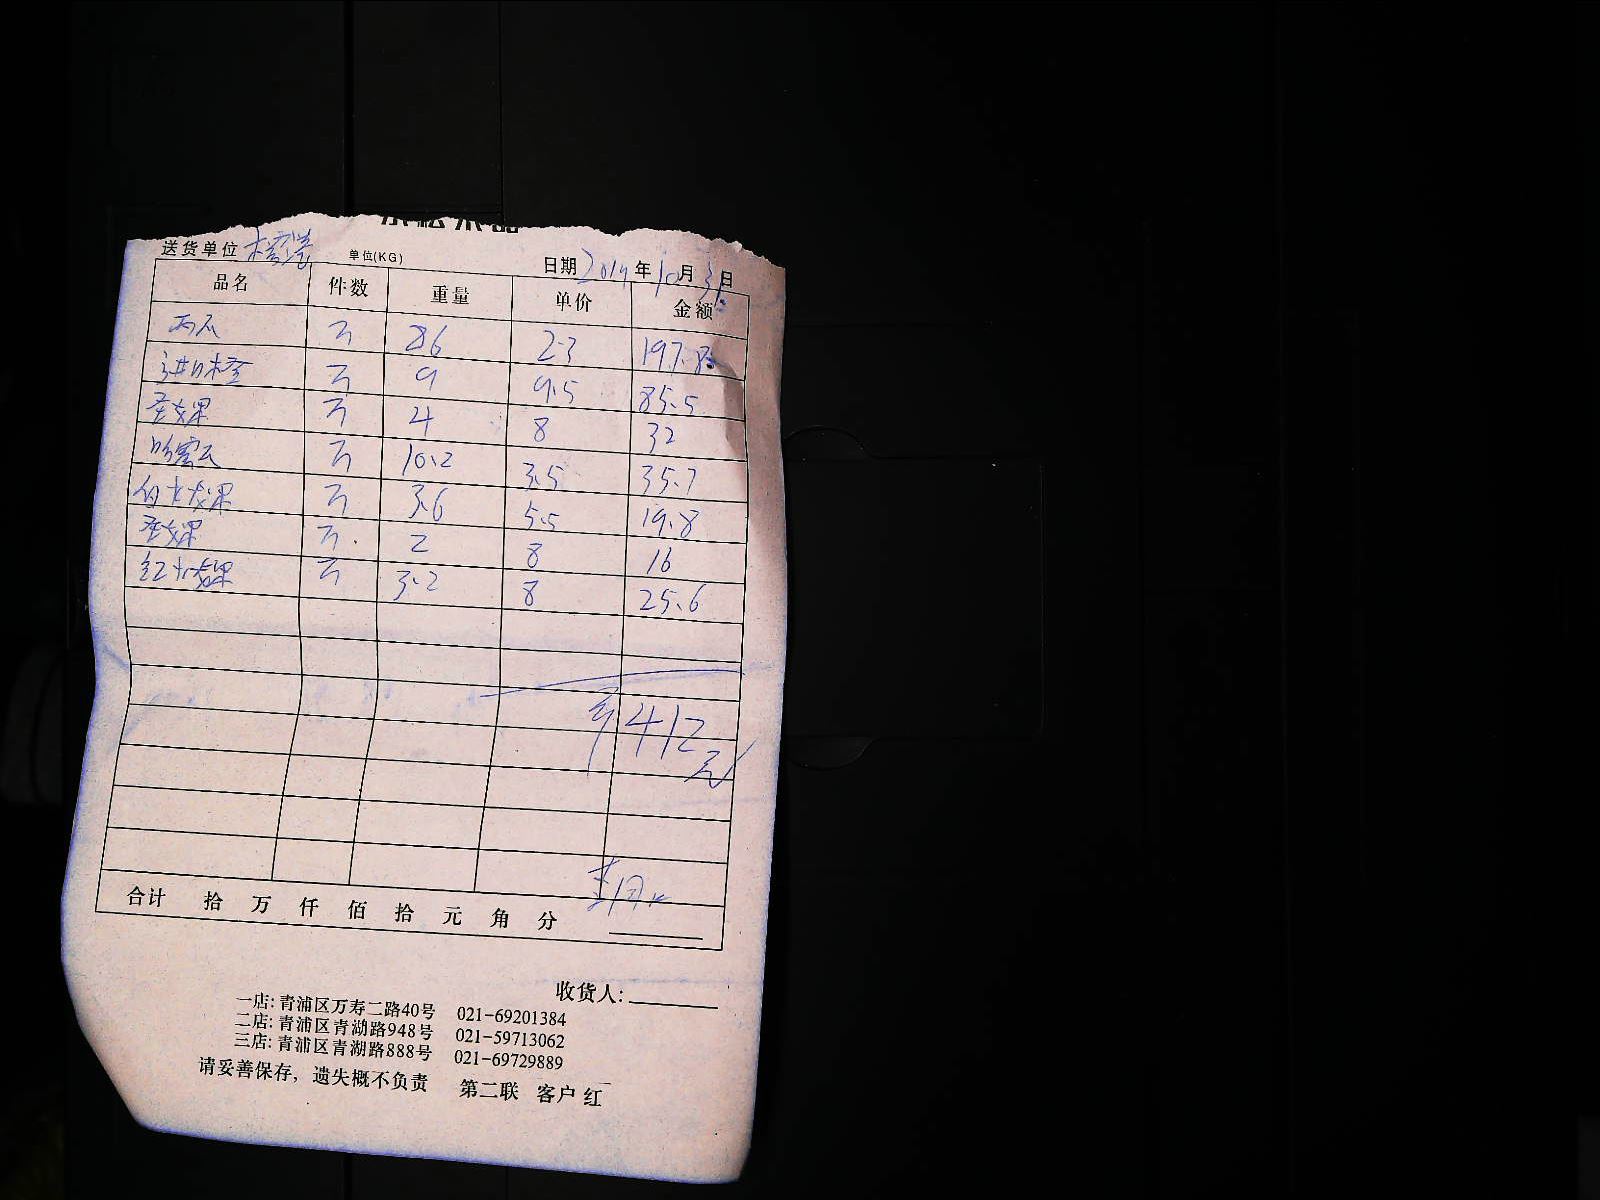 送货单位 单位(KG) 日期 2019 年 10 月 31 日
品名 件数 重量 单价 金额
西瓜 斤 86 2.3 197.8
进口橙 斤 9 9.5 85.5
圣女果 斤 4 8 32
哈密瓜 斤 10.2 3.5 35.7
白火龙果 斤 3.6 5.5 19.8
圣女果 斤 2 8 16
红火龙果 斤 3.2 8 25.6
412元
合计 拾 万 仟 佰 拾 元 角 分
收货人:
一店: 青浦区万寿二路40号 021-69201384
二店: 青浦区青湖路948号 021-59713062
三店: 青浦区青湖路888号 021-69729889
请妥善保存，遗失概不负责 第二联 客户 红